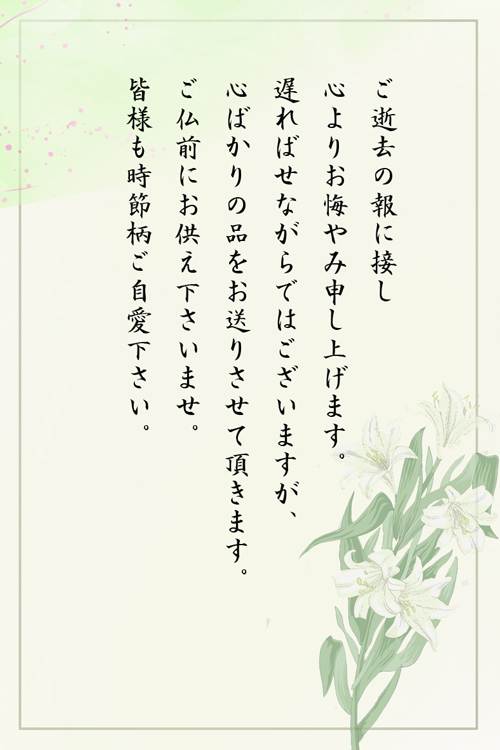 ご逝去の報に接し
心よりお悔やみ申し上げます。
遅ればせながらではございますが、
心ばかりの品をお送りさせて頂きます。
ご仏前にお供え下さいませ。
皆様も時節柄ご自愛下さい。